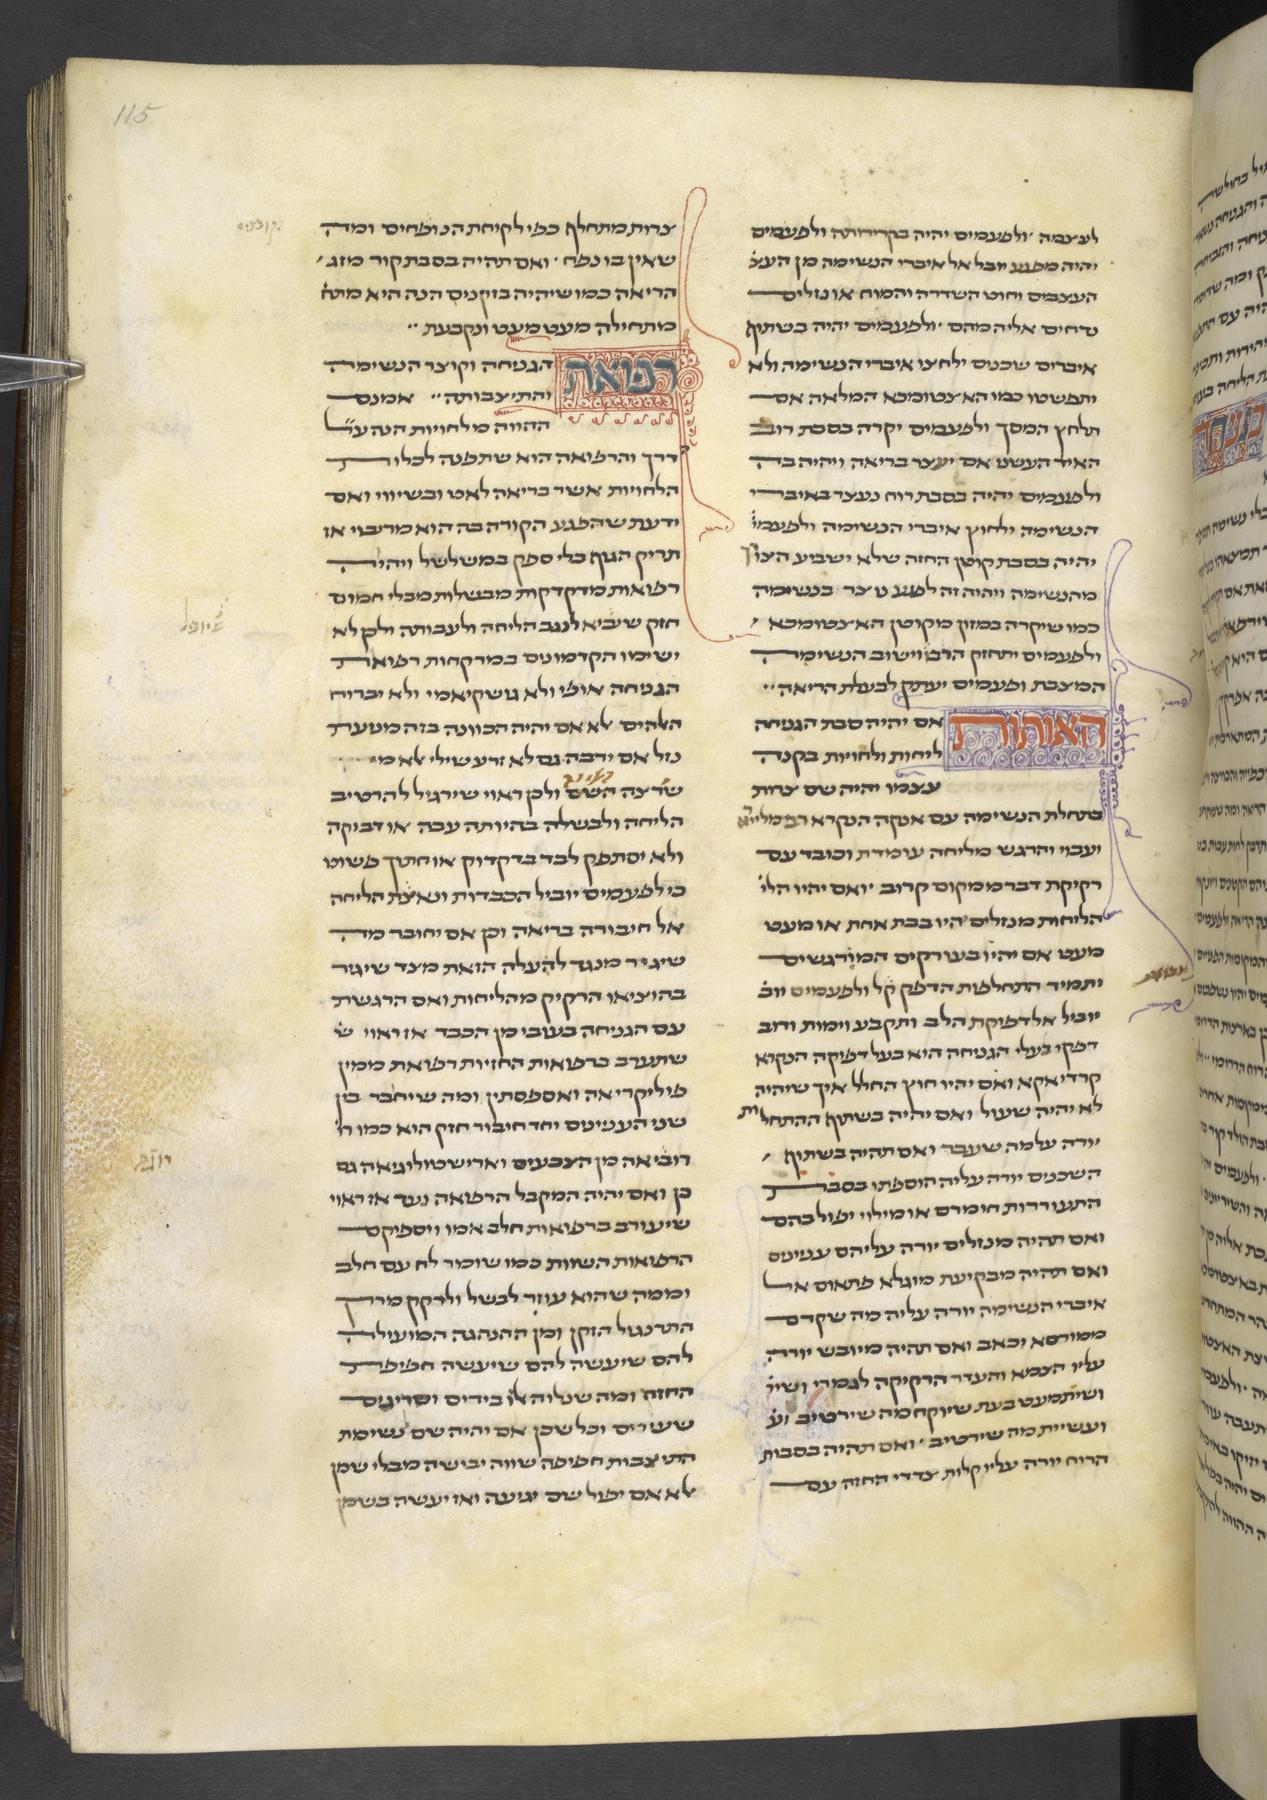 115
לעצמה ולפעמים יהיה בקרירותה ולפעמים
יהיה מפגע יובל אל איברי הנשימה מן העצ
העצבים וחוט השדרה והמוח או נזלים
אליה מהם ולפעמים יהיה בשתוף
איברים שכנים ילחצו איברי הנשימה ולא
יתפשטו כמו האצטומכא המלאה אם
תלחץ המסך ולפעמים יקרה בסבת רוב
האיד העשני אם יעצר בריאה ויהיה בה
ולפעמים יהיה בסבת רוח נעצר באיברי
הנשימה ילחוץ איברי הנשימה ולפעמי
יהיה בסבת קוטן החזה שלא ישביע הצורך
מהנשימה ויהיה זה לפגע נוצר בנשימה
כמו שיקרה במזון מקוטן האצטומכא
ולפעמים יתחזק הרבו וישוב הנשימה
המצבת ופעמים יעתק לבעלת הריאה
האותות אם יהיה סבת הגניחה
ליחות ולחויות בקנה
עצמו יהיה שם צרות
בתחלת הנשימה עם אנקה הנקרא
יעבוי והרגש מליחה עומדת וכובד עם
רקיקת דבר ממקום קרוב ואם יהיו הלי
הליחות מנזלים היו בבת אחת או מעט
מעט אם יהיו בעורקים המורגשים
יתמיד התחלפות הדפק קל ולפעמים יוב
יוביל אל דפיקת הלב ותקבע וימות ורוב
דפקי בעלי הגניחה היא בעל דפיקה הנקרא
קרדיאקא ואם יהיו חוץ החלל איך שיהיה
לא יהיה שעול ואם יהיה בשתוף ההתחלות
יורה עליה מה שעבר ואם תהיה בשתוף
השכנים יורה עליה הוספתו בסבת
התעוררות חומרם או מילוי יפול בהם
ואם תהיה מנזלים יורה עליהם ענינים
ואם תהיה מבקיעת מוגלא פתאום אל
איברי הנשימה יורה עליה מה שקדם
ממורסא וכאב ואם תהיה מיובש יורה
עליו הצמא והעדר הרקיקה לגמרי ושי
ושיתמעט בעת שיוקח מה שירטיב וע
ועשיית מה שירטיב ואם תהיה בסבות
הרוח יורה עליו קלות צדדי החזה עם
צרות מתחלף כפי לקיחת הנופחים ומה
שאין בו נפח ואם תהיה בסבת קור מזג
הריאה כמו שיהיה בזקנים הנה היא מתח
מתחילה מעט מעט ונקבעת
רפואת הגניחה וקוצר הנשימה
והתיצבותה אמנם
ההווה מלחויות הנה על
דרך והרפואה הוא שתפנה לכלות
הלחויות אשר בריאה לאט ובשיווי ואם
ידעת שהפגע הקורה בה הוא מריבוי אז
תריק הגוף בלי ספק במשלשל ויהיה
רפואות מדקדקות מבשלות מבלי חמום
חזק שיביא לנגב הליחה ולעבותה ולכן לא
ישימו הקדמונים במרקחות רפואת
הגניחה אופי ולא גושקיאמי ולא יברוח
האלהים לא אם יהיה הכוונה בזה מניעת
נזל אם ירבה גם לא זרע שילי לא מי
שירצה השם ולכן ראוי שירגיל להרטיב
הליחה ולבשלה בהיותה עבה או דביקה
ולא יסתפק לבד בדקדוק או חתוך פשוט
כי לפעמים יוביל הכבדות ויאיצת הליחה
אל חיבורה בריאה וכן אם יחובר מה
שיגיד מנגד להעלה הזאת מצד שיגור
בהוציאו הרקיק מהליחות ואם הרגשת
עם הגניחה בעובי מן הכבד אז ראוי ש
שתערב ברפואות החזיות רפואת ממין
פוליקריאה ואספסתין ומה שיחבר בין
שני הענינים יחד חיבור חזק הוא כמו ר
רוביאה מן הצבעים וארישטולוגיאה גם
כן ואם יהיה המקבל הרפואה נער אז ראוי
שיעורב ברפואות חלב אמו ויספיקם
הרפואות השוות כמו שומר לח עם חלב
וממה שהוא עוזר לבשל ולרקק מרק
התרנגול הזקן ומן ההנהגה המועילה
להם שיעשה להם שיעשה חפיפת
החזה ומה שנלוה או בידים וסדינים
שעירים וכל שכן אם יהיה שם נשימת
התיצבות חפיפה שווה יבישה מבלי שמן
לא אם יפול שם יגיעה ואז יעשה בשמן